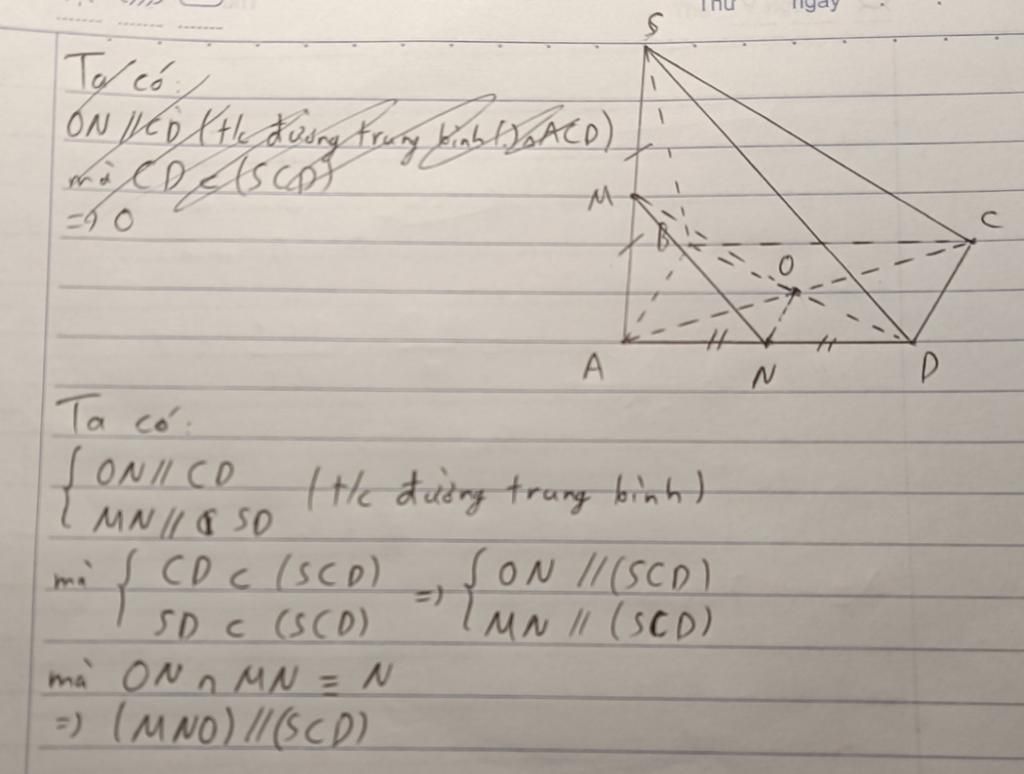 Thứ ngày
Ta có:
ON // CD (t/c đường trung bình (.) △ACD)
mà CD ⊂ (SCD)
=> O
S
M
B
C
O
A
N
D
Ta có:
{ ON // CD
{ MN // SD
(t/c đường trung bình)
mà { CD ⊂ (SCD) => { ON // (SCD)
{ SD ⊂ (SCD) { MN // (SCD)
mà ON ∩ MN ≡ N
=> (MNO) // (SCD)